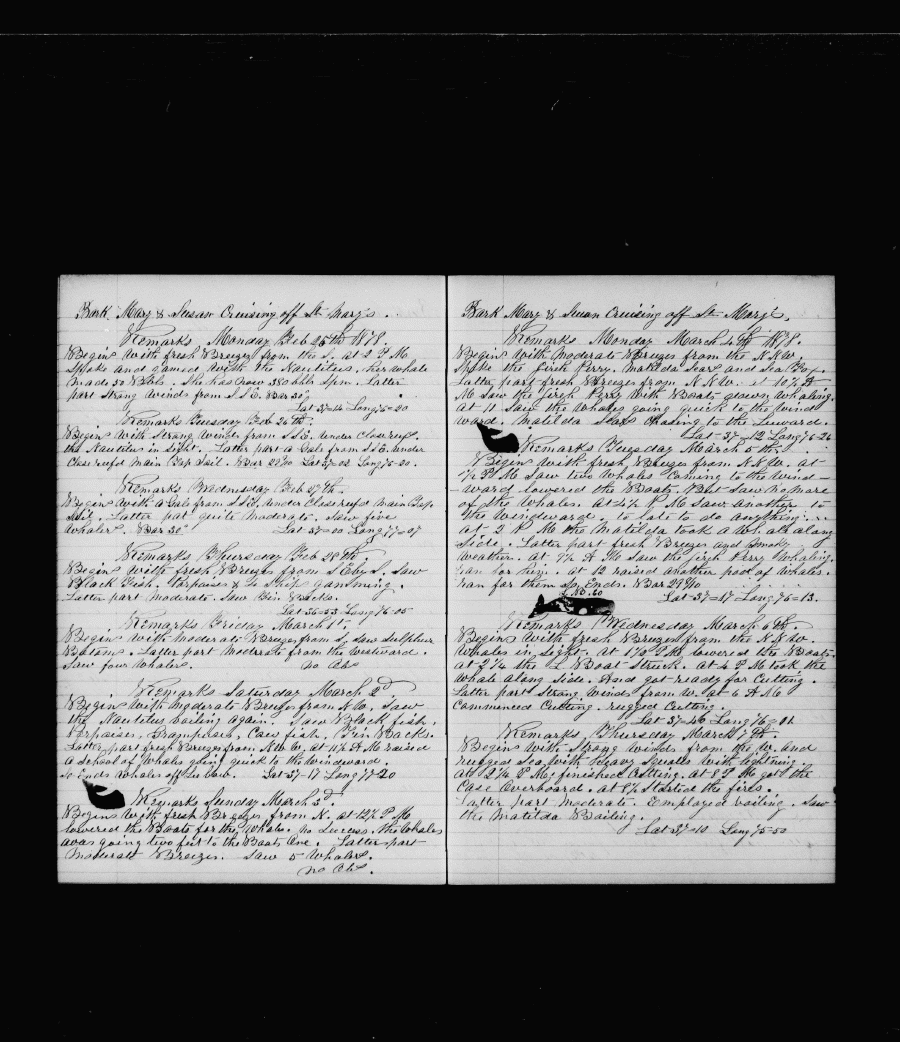 Bark Mary & Susan Cruising off St Mary's
Remarks Monday Feb 25th 1878
Begins With fresh Breezes from the S. at 2 P M
Spoke and Gamed With the Nautilus, her whale
Made 30 Bbls. She has now 380 bbls Spm. Latter
part Strong Winds from S.S.E. Bar 30°
Lat 37=14 Long 75=20
Remarks Tuesday Feb 26th.
Begins With Strong Winds from S.S.E. under Close reefs.
the Nautilus in Sight. Latter part a Gale from S.S.E. under
Close reefd Main Top Sail. Bar 29 Lat 37=02 Long 75-20.
Remarks Wednesday Feb 27th.
Begins With a Gale from S.S.E. under Close reefd Main Top
Sail. Latter part quite Moderate. Saw five
Whalers. Bar 30° Lat 37=00 Long 77=07
Remarks Thursday Feb 28th.
Begins With fresh Breezes from S.E by S. Saw
Black Fish. Porpoises & Ship gamming.
Latter part Moderate. Saw Fin Backs.
Lat 36=53 Long 76=05
Remarks Friday March 1st.
Begins With Moderate Breezes from S. saw Sulphur
Bottoms. Latter part Moderate from the Westward.
Saw four Whalers. no Obs
Remarks Saturday March 2d.
Begins With Moderate Breezes from N.W. Saw
the Nautilus boiling again. Saw Black fish,
Porpoises, Grampuses, Cow fish, Fin Backs.
Latter part fresh Breezes from N.W.W. at 11½ A M raised
a School of Whales going quick to the Windward.
So Ends Whales off Lee bow. Lat 37-17 Long 77=20
Remarks Sunday March 3d.
Begins With fresh Breezes from N. at 12½ P M
lowered the Boats for the Whales. no Success. the Whales
was going two feet to the Boats One. Latter part
Moderate Breezes. Saw 5 Whalers.
no Obs.
Bark Mary & Susan Cruising off St Mary's.
Remarks Monday March 4th 1878.
Begins With Moderate Breezes from the N.N.W.
Spoke the Jireh Perry. Matilda Sears and Sea Fox.
Latter part fresh Breezes from N.N.W. at 10½ A
M. Saw the Jireh Perry With Boats down Whaling.
at 11 Saw the Whales going quick to the Wind
ward. Matilda Sears Chasing to the Leeward.
Lat=37=12 Long 76-26
Remarks Tuesday March 5th.
Begins With fresh Breezes from N.N.W. at
½ P M Saw two Whales Coming to the Wind=
=ward lowered the Boats. But Saw no more
of the Whales. at 4½ P. M Saw another to
the Windward. to late to do anything.
at 2 P M the Matilda took a Wh. ah along
Side. Latter part fresh Breezes and Smoky
Weather. at 7½ A. M Saw the Jireh Perry Whaling.
ran for him. at 12 raised another pod of Whales.
ran for them So Ends. Bar 29
L. No. 60 Lat=37=17 Long 76=13.
Remarks Wednesday March 6th.
Begins With fresh Breezes from the N.N.W.
Whales in Sight. at 1½ P. M. lowered the Boats.
at 2¼ the L. Boat Struck. at 4 P M took the
Whale along Side. And got ready for Cutting.
Latter part Strong Winds from W. at 6 A M
Commenced Cutting. rugged Cutting.
Lat 37=46 Long 76=01
Remarks Thursday March 7th.
Begins With Strong Winds from the W. and
rugged Sea With heavy Squalls With lightning.
At 2¼ P M. finished Cutting. at 8 P M got the
Case Overboard. at 8½ Started the fires.
Latter part Moderate. Employed boiling. Saw
the Matilda Boiling.
Lat 37=10 Long 75=50